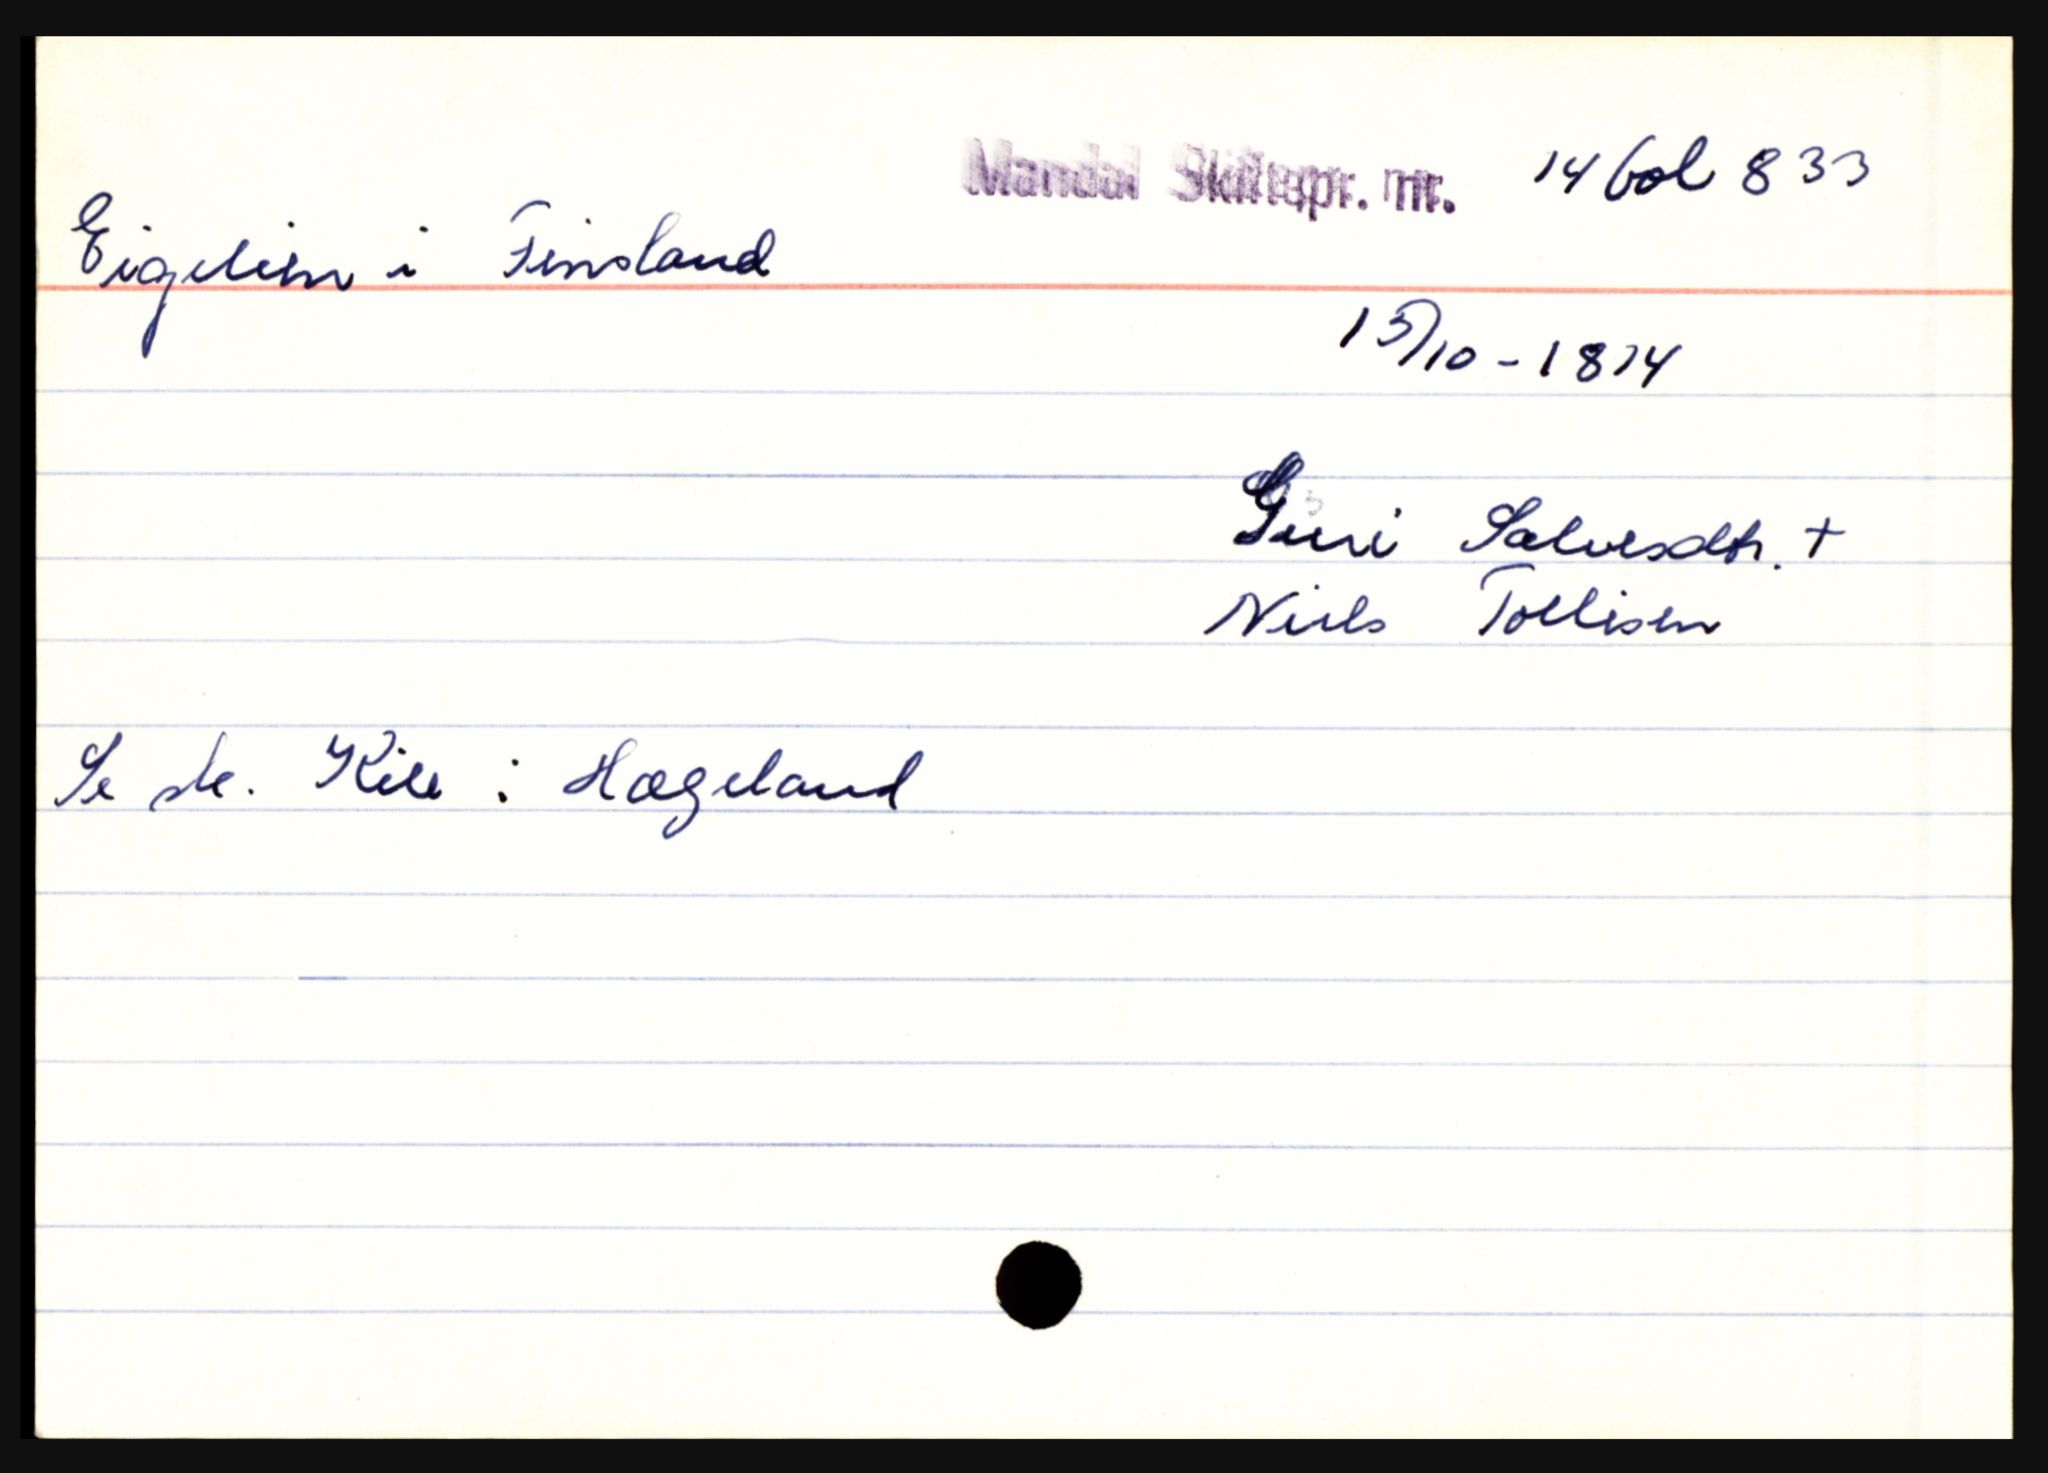 Mandal Skiftepr. nr. 14 fol 833
Eigelien i Finsland
15/10-1814
Guri Salvesdtr. +
Niels Tollisen
Se sk. Kile i Hægeland